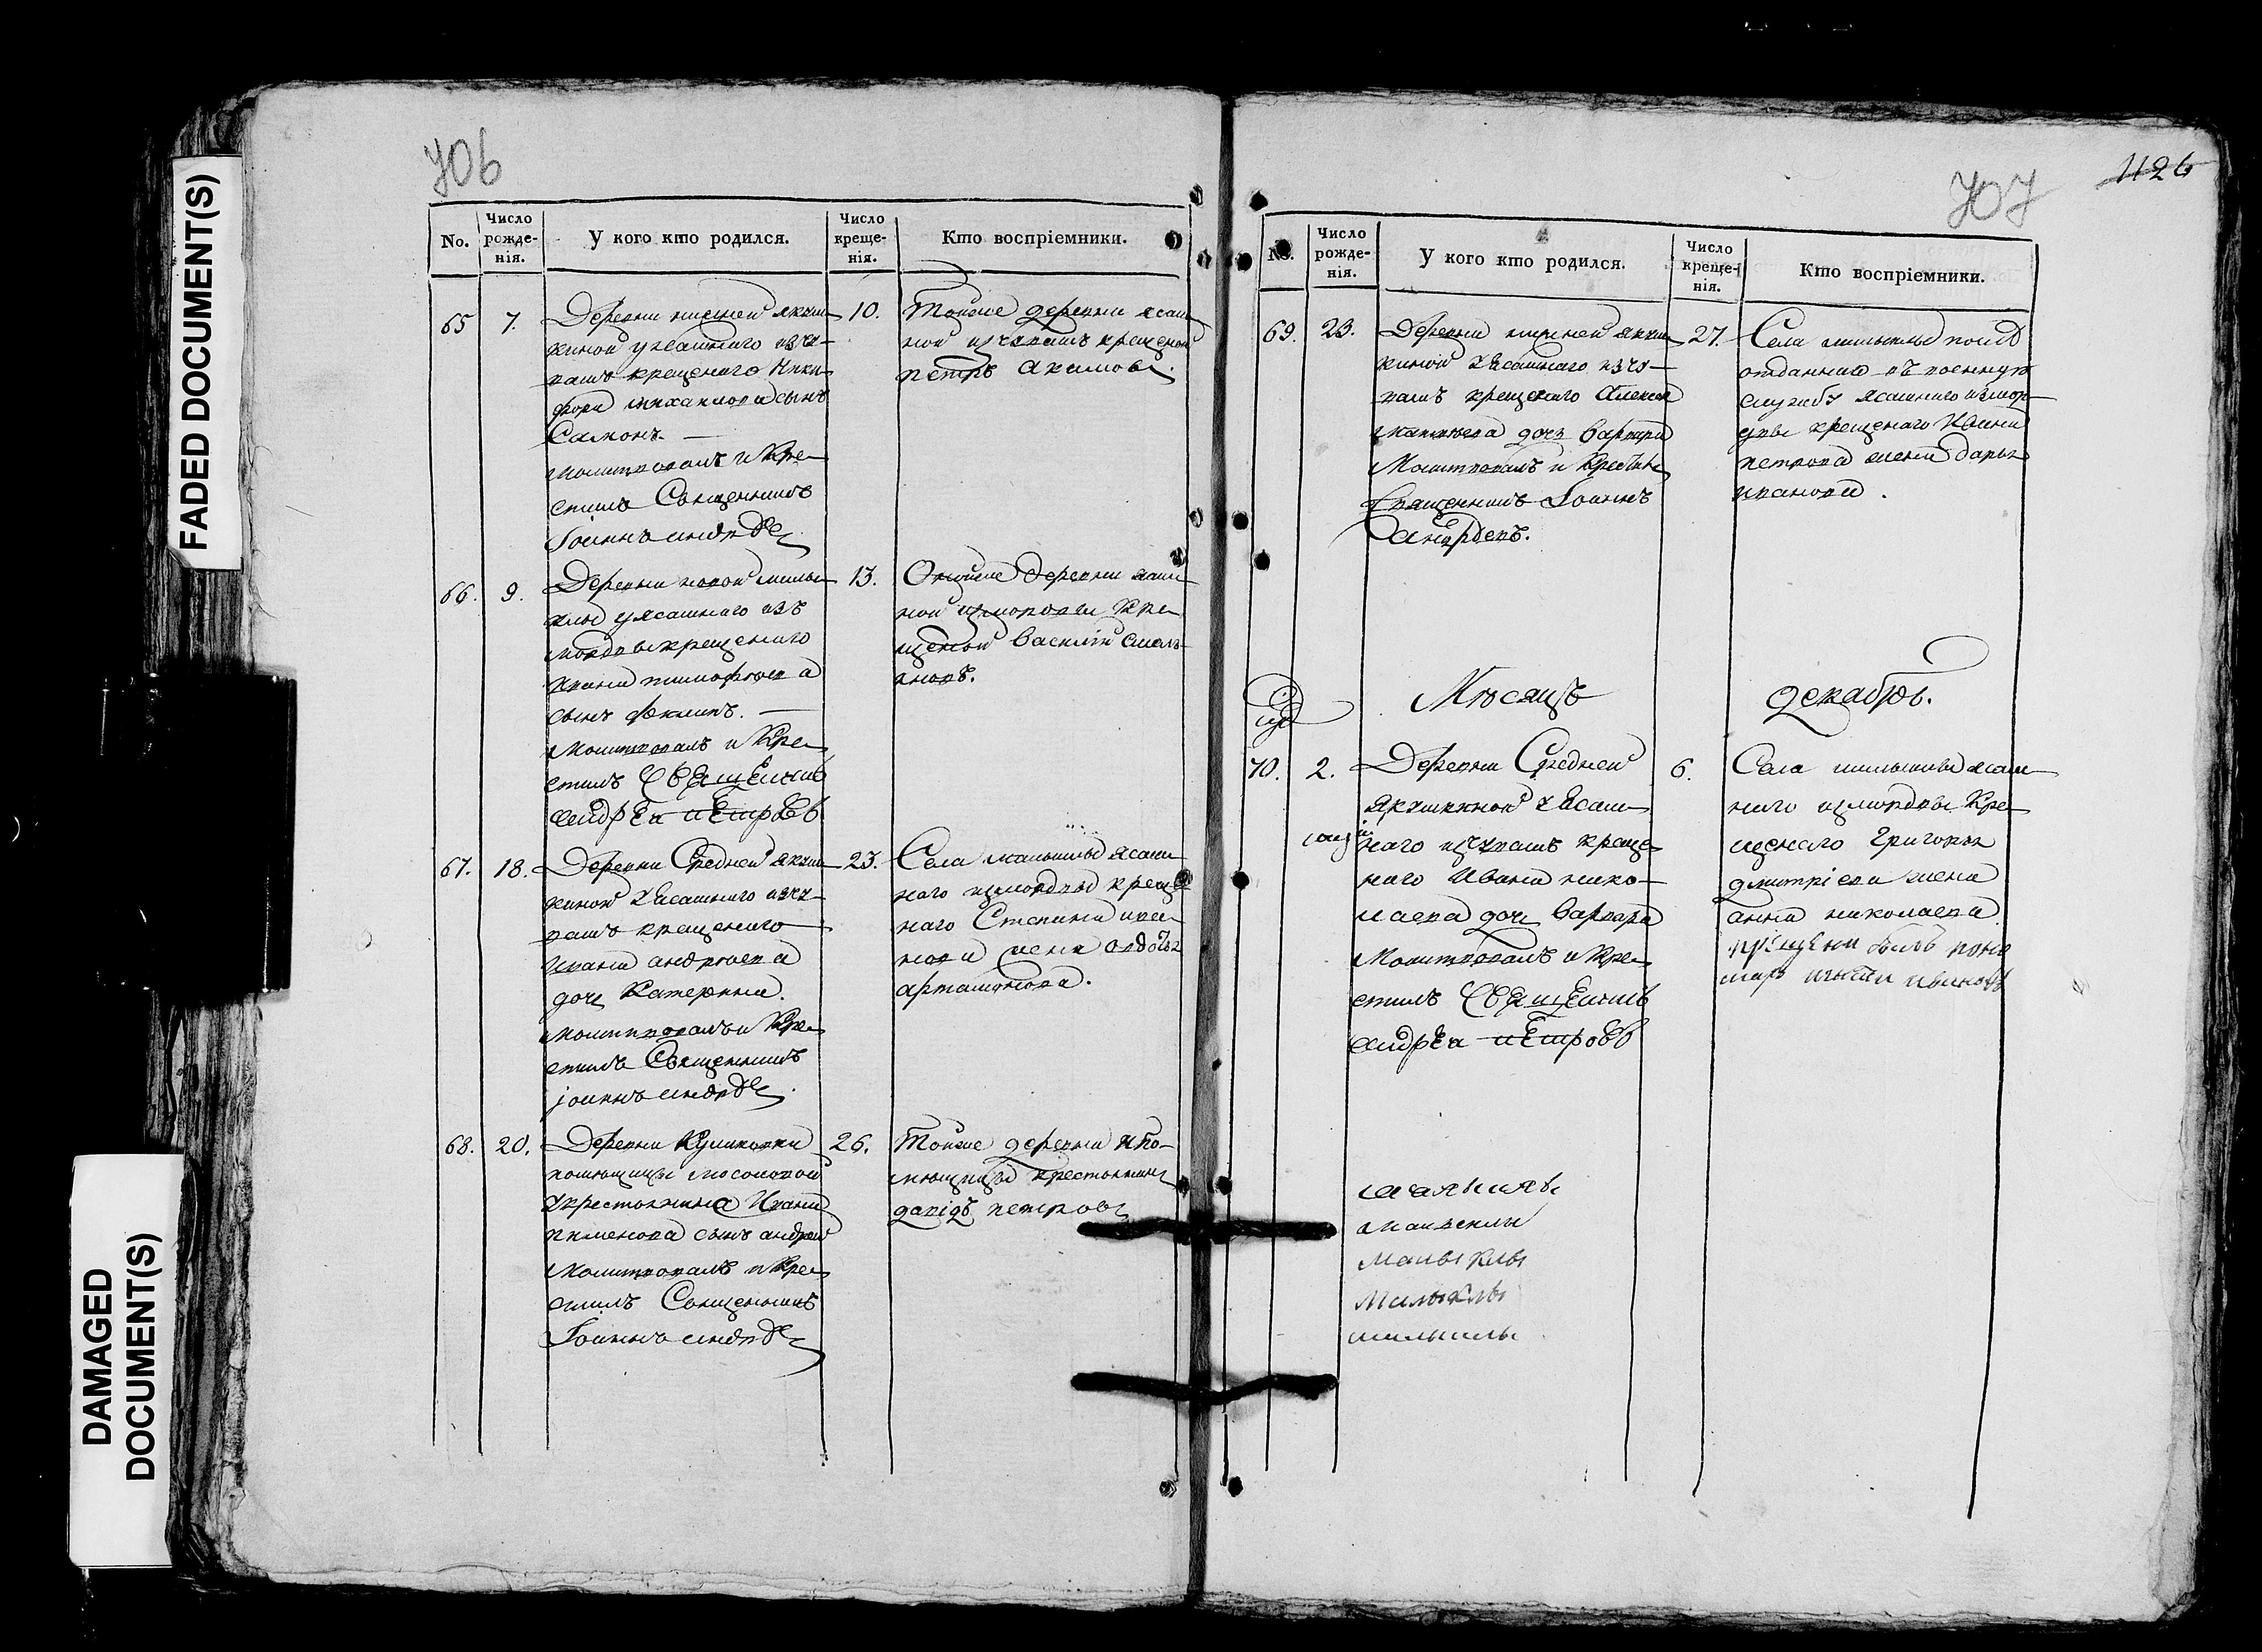 FADED DOCUMENT(S)
DAMAGED
DOCUMENT(S)
706
No.
Число
рожде-
нія.
У кого кто родился.
Число
креще-
нія.
Кто воспріемники.
65
7.
Деревни нижней якуш
киной уясашнаго изчу-
вашъ крещенаго Ники
фора михаилова сынъ
Самонъ.
молитвовалъ и Кре
стилъ Священникъ
Іоаннъ
10.
Тойже деревни ясаш
ной изчувашъ крещеной
петръ Акимовъ.
66.
9.
Деревни новой малы
клы уясашнаго изъ
мордвы крещенаго
Ивана тимофеева
сынъ Филипъ.
молитвовалъ и Кре
стилъ Священникъ
андрей петровъ
13.
Оной же деревни ясаш
ной измордвы Кре
щеной Василій
67.
18.
Деревни Средней якуш
киной уясашнаго изчу-
вашъ крещенаго
Ивана андреева
дочь Катерина.
молитвовалъ и Кре
стилъ Священникъ
іоаннъ
23.
Села малыклы ясаш
наго измордвы креще
наго Степана ива
нова жена авдотья
68.
20.
Деревни Куликовки
помещицы мосоловой
укрестьянина Ивана
пименова сынъ андрей
молитвовалъ и Кре
стилъ Священникъ
Іоаннъ
26.
Тойже деревни ипо-
мещицы крестьянинъ
давідъ петровъ
707
1126
No.
Число
рожде-
нія.
У кого кто родился.
Число
креще-
нія.
Кто воспріемники.
69.
23.
Деревни нижней якуш
киной уясашнаго изчу-
вашъ крещенаго Алексея
матвеева дочь варвара
Молитвовалъ и Крестилъ
Священникъ Іоаннъ
27.
Села малыклы
отданнаго въ военную
службу ясашнаго измор-
двы крещенаго Ивана
петрова жена дарья
иванова.
Мѣсяцъ
декабрь.
70.
2.
Деревни Средней
якушкиной уясаш
наго изчувашъ креще
наго Ивана нико-
лаева дочь варвара
Молитвовалъ и Кре
стилъ Священникъ
андрей петровъ
6.
Села малыклы ясаш
наго измордвы Кре
щенаго Григорья
дмитріева жена
анна николаева
малыклы
малыклы
малыклы